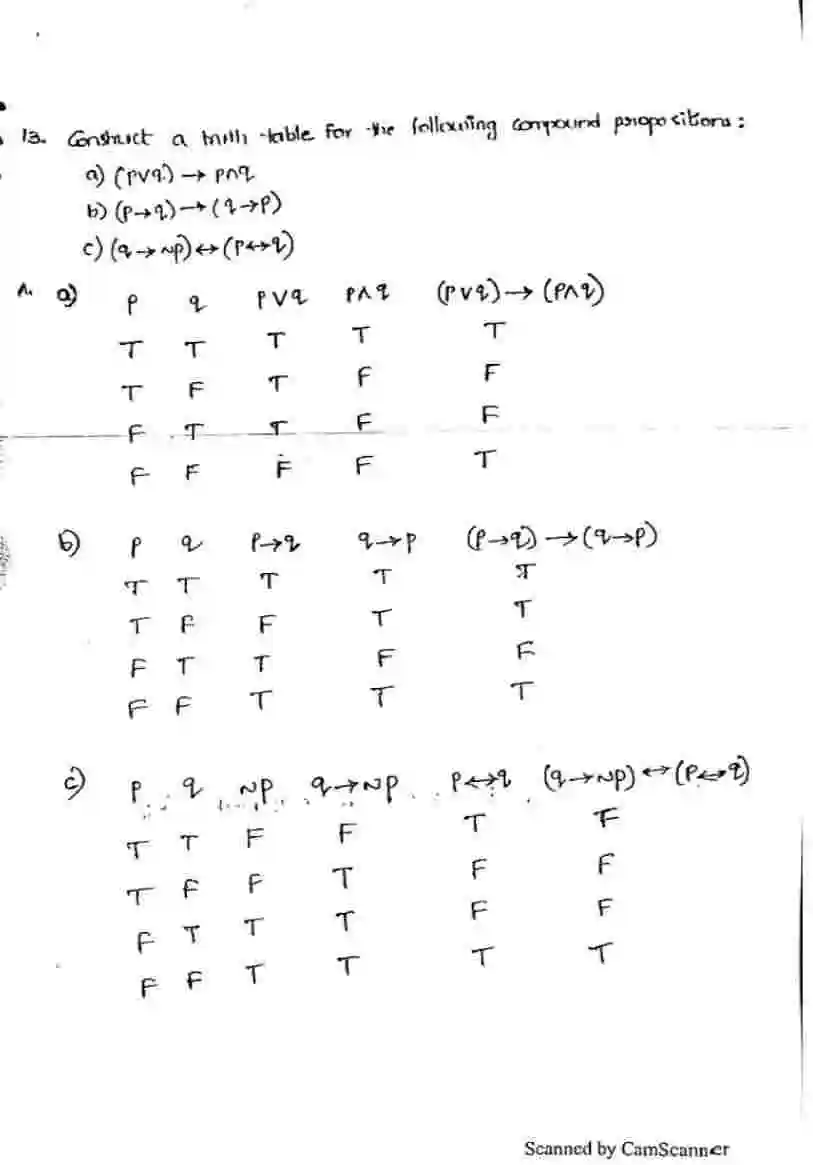 13. Construct a truth table for the following compound propositions:
a) (p∨q) → p∧q
b) (p→q) → (q→p)
c) (q→~p) ↔ (p↔q)
A. a) p q p∨q p∧q (p∨q) → (p∧q)
T T T T T
T F T F F
F T T F F
F F F F T
b) p q p→q q→p (p→q) → (q→p)
T T T T T
T F F T T
F T T F F
F F T T T
c) p q ~p q→~p p↔q (q→~p) ↔ (p↔q)
T T F F T F
T F F T F F
F T T T F F
F F T T T T
Scanned by CamScanner